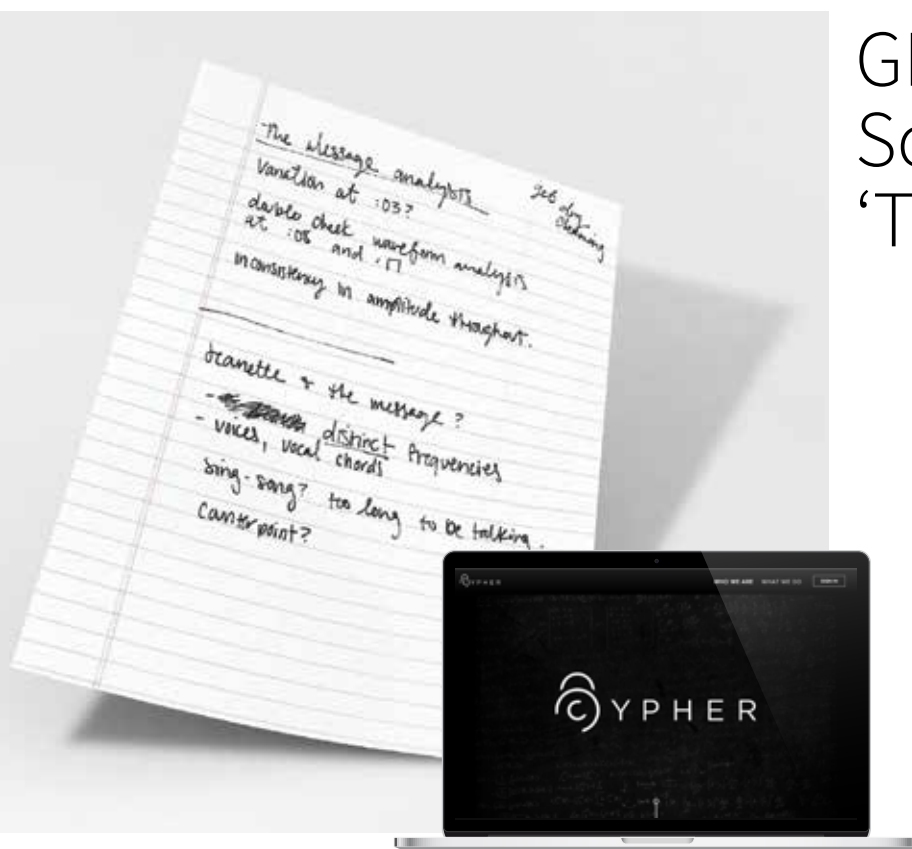 The Message analysis
get dry
cleaning
Variation at :03?
double check waveform analysis
at :08 and :17
inconsistency in amplitude throughout.
Jeanette & the message?
- distinct frequencies
- voices, vocal chords
sing-song? too long to be talking.
Counterpoint?
CYPHER
WHO WE ARE WHAT WE DO SIGN IN
CYPHER
So
‘T